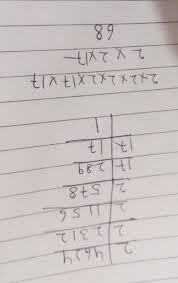 2 | 4624
2 | 2312
2 | 1156
2 | 578
17 | 289
17 | 17
| 1
2×2×2×2×17×17
2×2×17
68